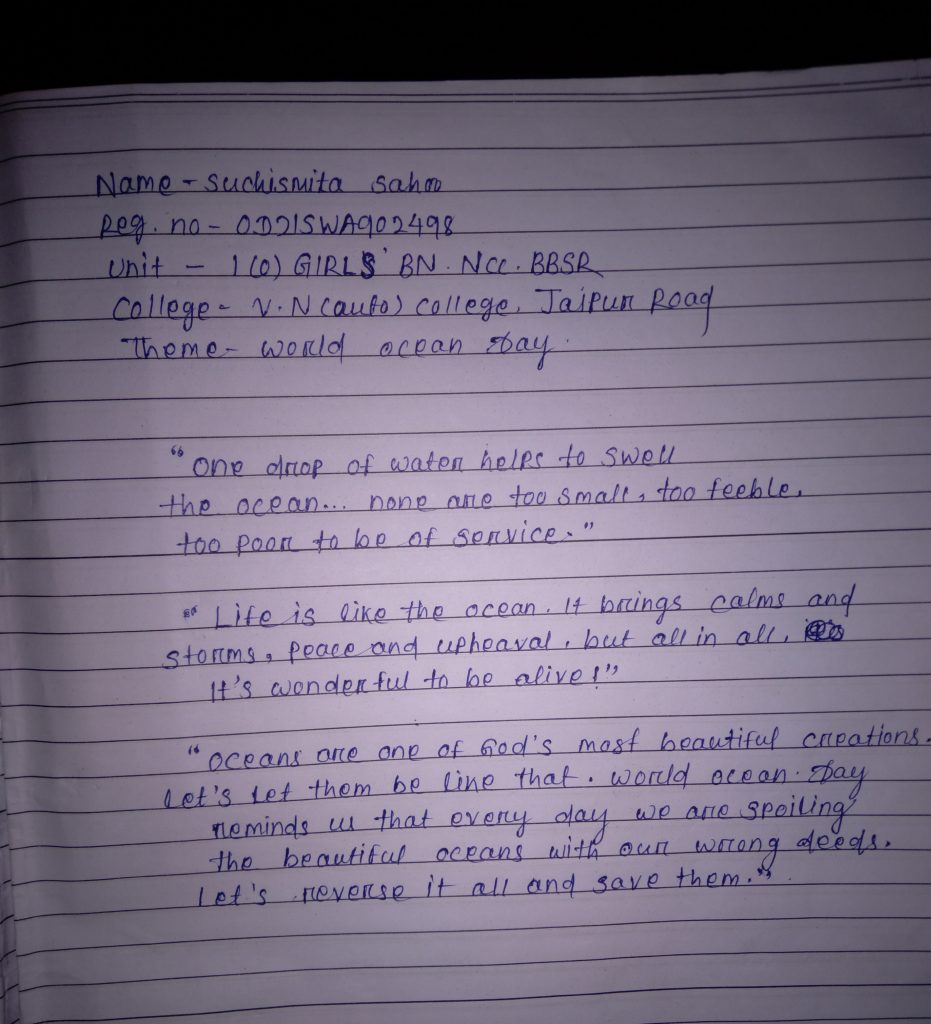 Name - Suchismita Sahoo
Reg. no - OD21SWA902498
Unit - 1 (O) GIRLS' BN. NCC. BBSR
College - V. N (auto) College, Jajpur Road
Theme - World ocean Day.
"One drop of water helps to swell
the ocean... none are too small, too feeble,
too poor to be of service."
"Life is like the ocean. It brings calms and
storms, peace and upheaval, but all in all,
It's wonderful to be alive!"
"Oceans are one of God's most beautiful creations.
Let's let them be like that. World ocean Day
reminds us that every day we are spoiling
the beautiful oceans with our wrong deeds.
Let's reverse it all and save them."